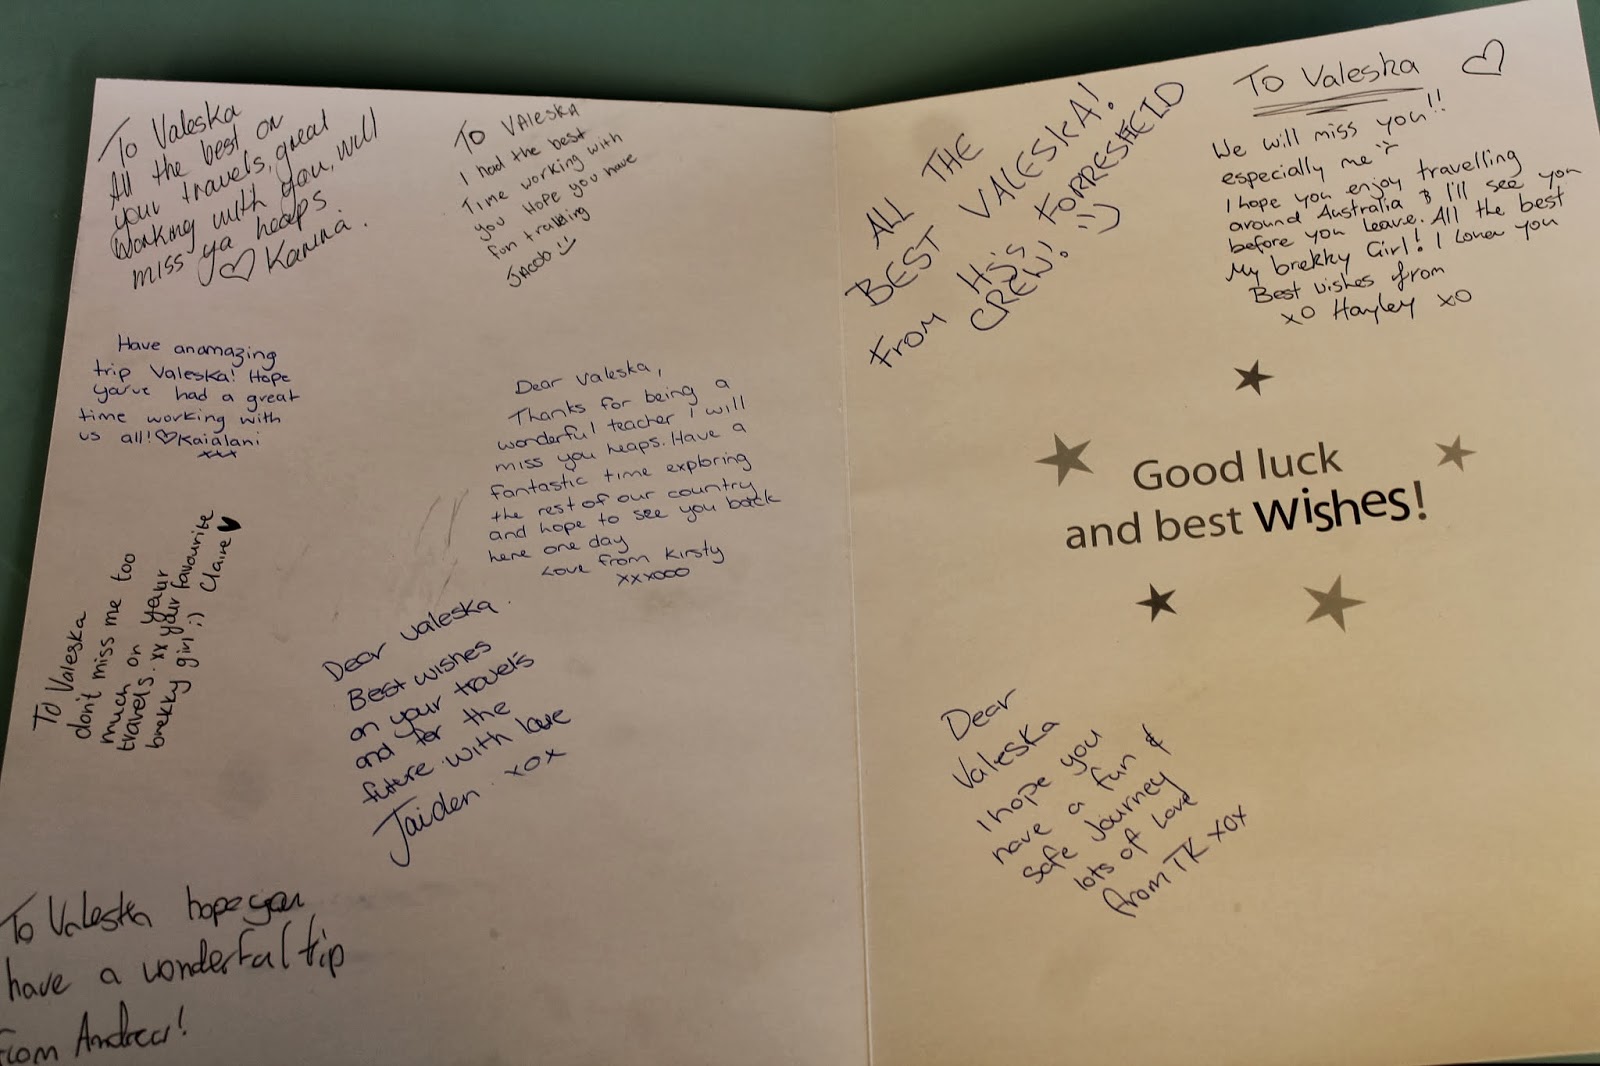 To Valeska
All the best on
your travels, great
Working with you, will
miss ya heaps.
♡ Kanina.
To VAleskA
I had the best
Time working with
you Hope you have
fun traking
JACOB :)
Have anamazing
trip Valeska! Hope
you've had a great
time working with
us all! ♡ Kaialani
xxx
Dear Valeska,
Thanks for being a
wonderful teacher I will
miss you heaps. Have a
fantastic time exploring
the rest of our country
and hope to see you back
here one day
Love from Kirsty
xxxooo
To Valeska
don't miss me too
much on your
travels. xx your favourite
brekky girl ;) Claire ♥
Dear Valeska.
Best wishes
on your travels
and for the
future with love
Jaiden xox
To Valeska hope you
have a wonderful trip
From Andrew!
ALL THE
BEST VALESKA!
From HJ's FORRESFIELD
CREW! :)
To Valeska ♡
We will miss you!!
especially me :(
I hope you enjoy travelling
around Australia & I'll see you
before you leave. All the best
My brekky Girl! I Love you
Best wishes from
xo Hayley xo
Good luck
and best Wishes!
Dear
Valeska
I hope you
have a fun &
safe Journey
lots of Love
from TK xox